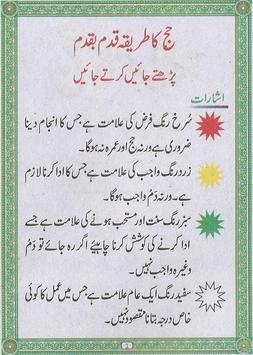 حج کا طریقہ قدم بقدم
پڑھتے جائیں کرتے جائیں
اشارات
سُرخ رنگ فرض کی علامت ہے جس کا انجام دینا
ضروری ہے ورنہ حج اور عمرہ نہ ہوگا۔
زرد رنگ واجب کی علامت ہے جس کا ادا کرنا لازم
ہے۔ ورنہ دَم واجب ہوگا۔
سبز رنگ سنت اور مستحب ہونے کی علامت ہے جسے
ادا کرنے کی کوشش کرنا چاہیئے اگر رہ جائے تو دَم
وغیرہ واجب نہیں۔
سفید رنگ ایک عام علامت ہے جس میں عمل کا کوئی
خاص درجہ بتانا مقصود نہیں۔